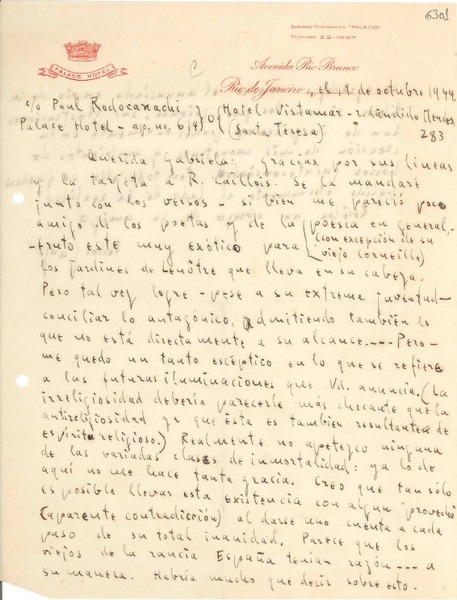 6301
ENDEREÇO TELEGRAPHICO "PALACIO"
22-1867
PALACE HOTEL
Avenida Rio Branco
Rio de Janeiro, el 1 de octubre 1944
c/o Paul Rodocanachi
Palace Hotel - ap. no. 614) o (Hotel Vistamar - r. Cândido Mendes,
(Santa Teresa) 283
Querida Gabriela: gracias por sus lineas
y la tarjeta a R. Caillois. Se la mandaré
junto con los versos - si bien me pareció poco
amigo de los poetas y de la poesía en general,
(con excepción de su
viejo Corneille)
- fruto este muy exótico para
los jardines de Lenôtre que lleva en su cabeza.
Pero tal vez logre - pese a su extrema juventud -
conciliar lo antagónico, admitiendo también lo
que no está directamente a su alcance. --- Pero
me quedo un tanto escéptico en lo que se refiere
a las futuras iluminaciones que Vd. anuncia. (La
irreligiosidad debería parecerle más chocante que la
antireligiosidad ya que ésta es tambien resultante de
espíritu religioso.) Realmente no apetezco ninguna
de las variadas clases de inmortalidad: ya lo de
aquí no me hace tanta gracia. Creo que tan sólo
es posible llevar esta existencia con algun provecho
(aparente contradicción) al darse uno cuenta a cada
paso de su total inanidad. Parece que los
viejos de la rancia España tenían razón --- a
su manera. Habría mucho que decir sobre esto.